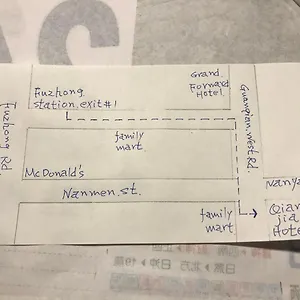 Fuzhong
station.exit#1
Grand
Forward
Hotel.
Fuzhong Rd.
Guanqian.West Rd.
family
mart.
McDonald's
Nanmen.st.
family
mart
Nanya
Qian
jia
Hote